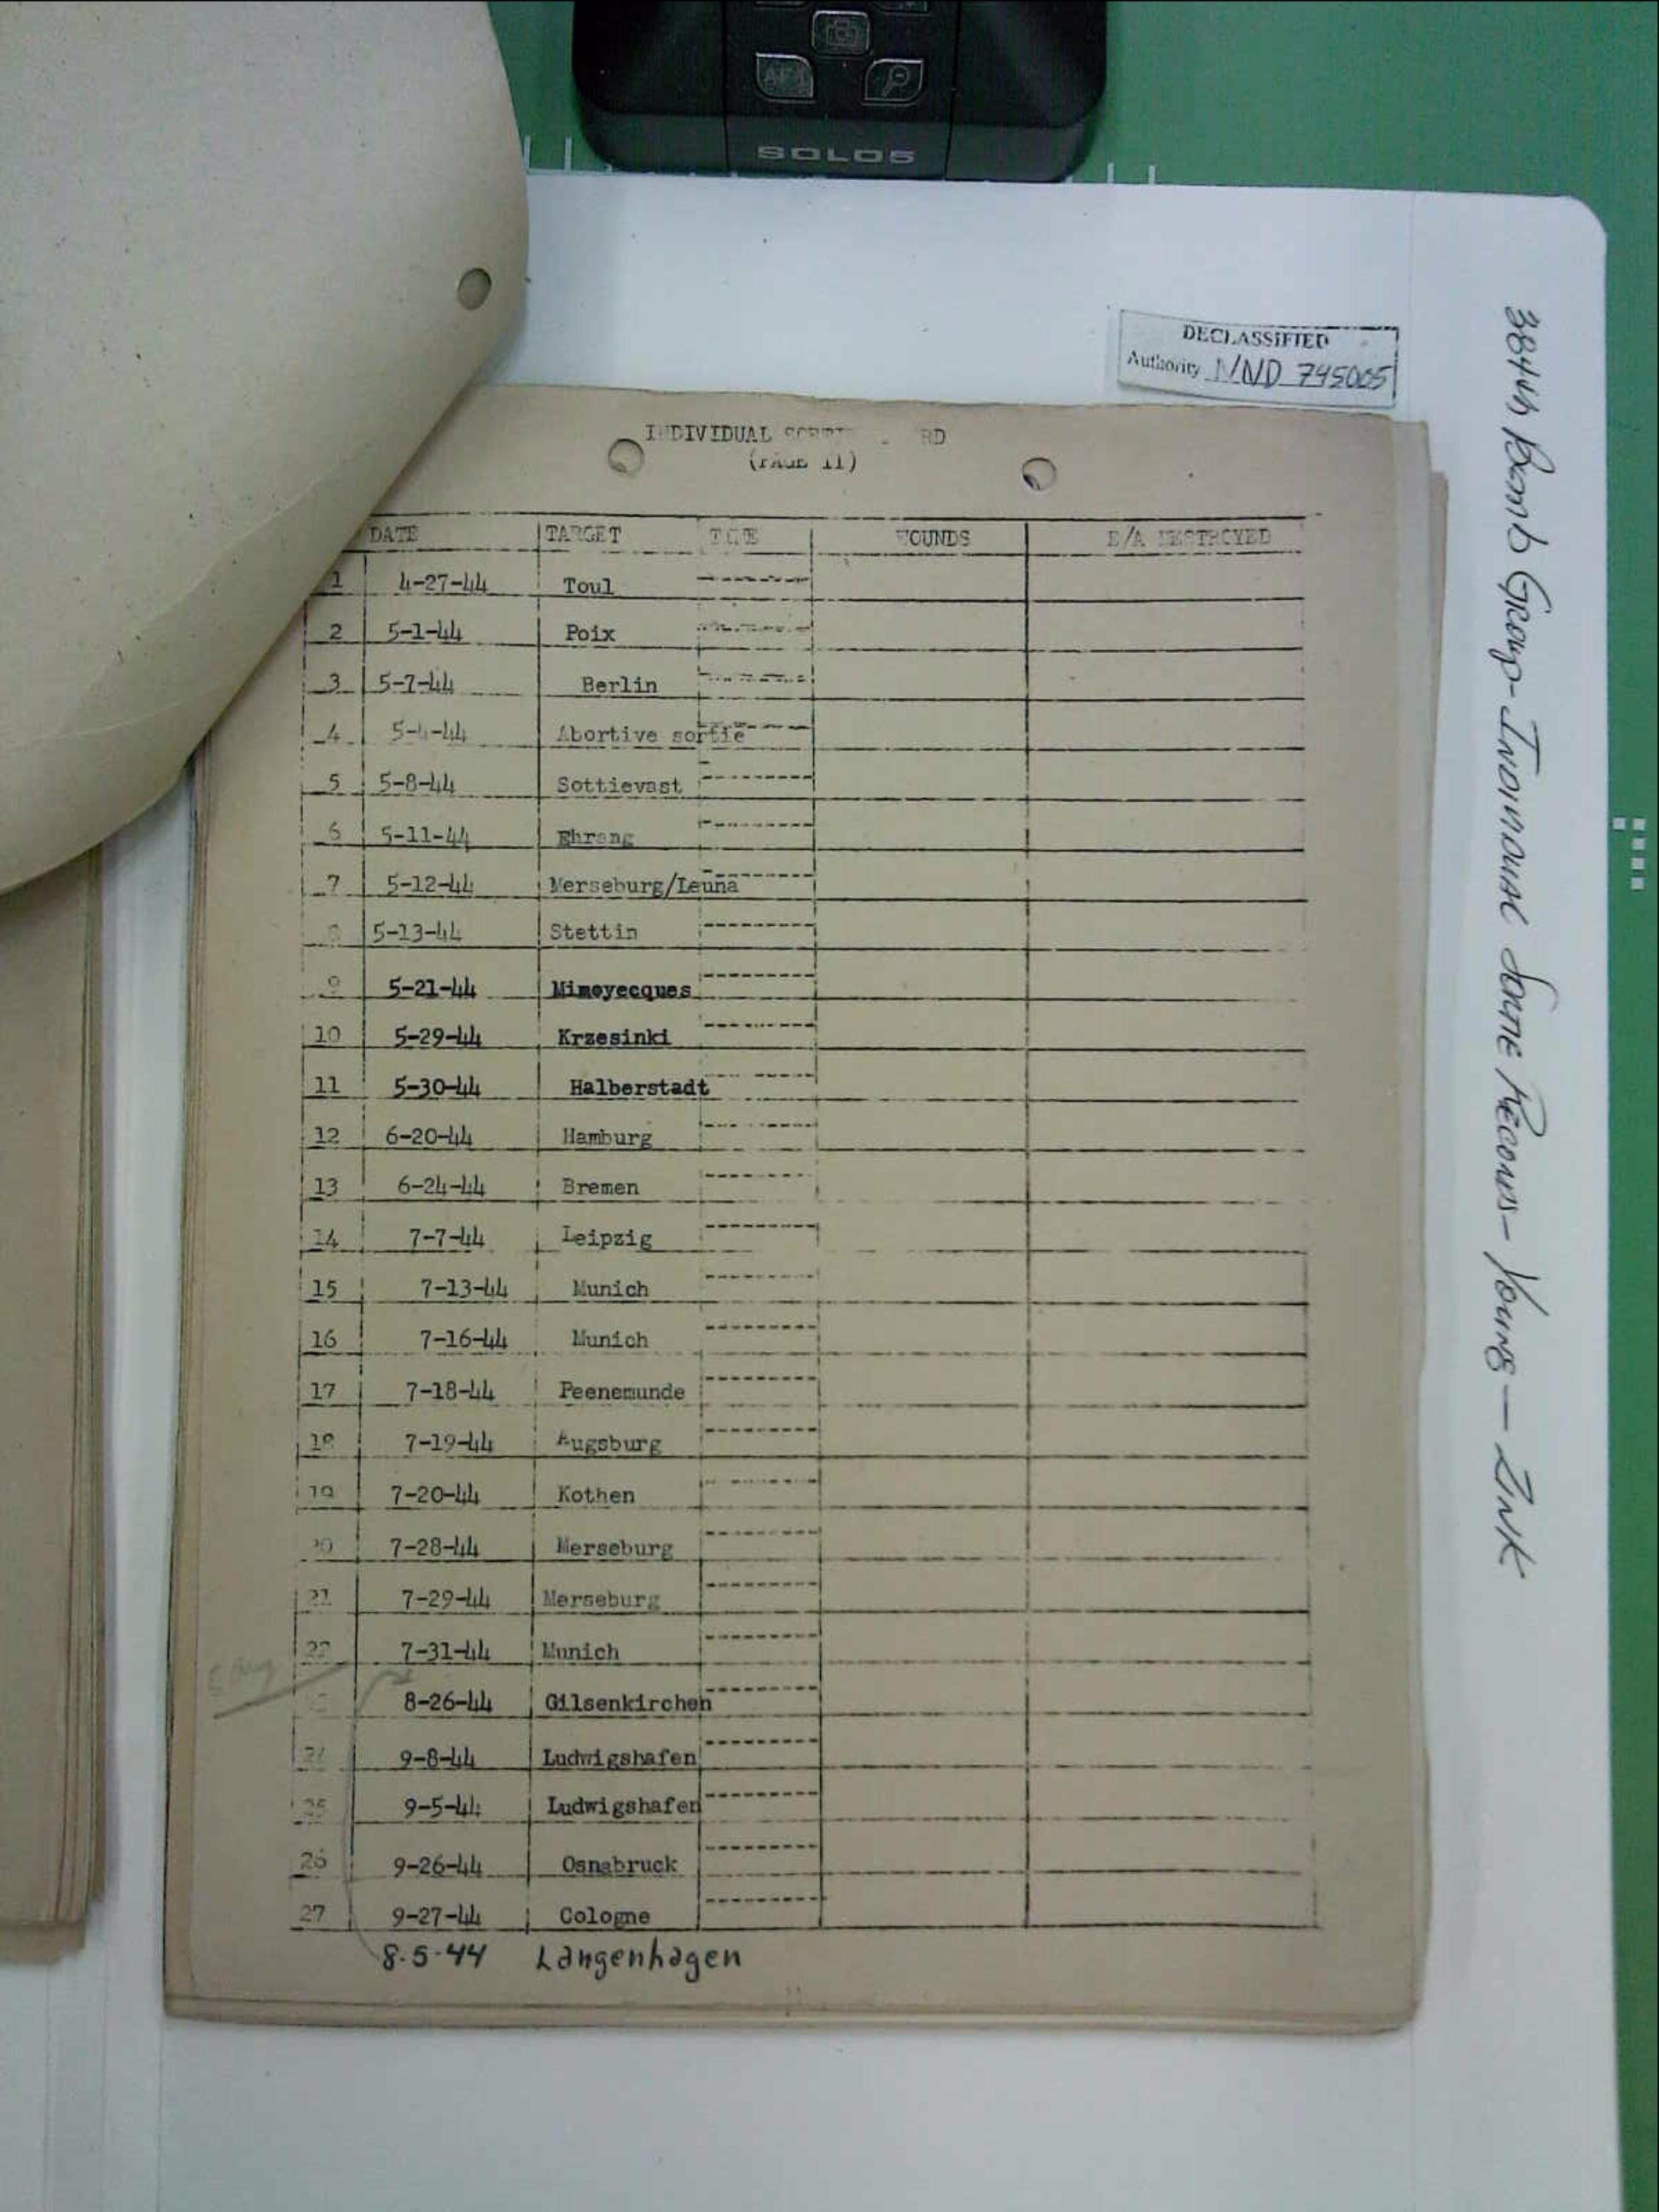 SOLO5
DECLASSIFIED
Authority NND 745005
384th Bomb Group - Individual Sortie Records - Young — Zink
INDIVIDUAL RD
(PAGE II)
DATE TARGET TIME WOUNDS E/A DESTROYED
1 4-27-44 Toul
2 5-1-44 Poix
3 5-7-44 Berlin
4 5-4-44 Abortive sortie
5 5-8-44 Sottievast
6 5-11-44 Ehrang
7 5-12-44 Merseburg/Leuna
8 5-13-44 Stettin
9 5-21-44 Mimoyecques
10 5-29-44 Krzesinki
11 5-30-44 Halberstadt
12 6-20-44 Hamburg
13 6-24-44 Bremen
14 7-7-44 Leipzig
15 7-13-44 Munich
16 7-16-44 Munich
17 7-18-44 Peenemunde
18 7-19-44 Augsburg
19 7-20-44 Kothen
20 7-28-44 Merseburg
21 7-29-44 Merseburg
22 7-31-44 Munich
8-26-44 Gilsenkirchen
24 9-8-44 Ludwigshafen
25 9-5-44 Ludwigshafen
26 9-26-44 Osnabruck
27 9-27-44 Cologne
8-5-44 Langenhagen